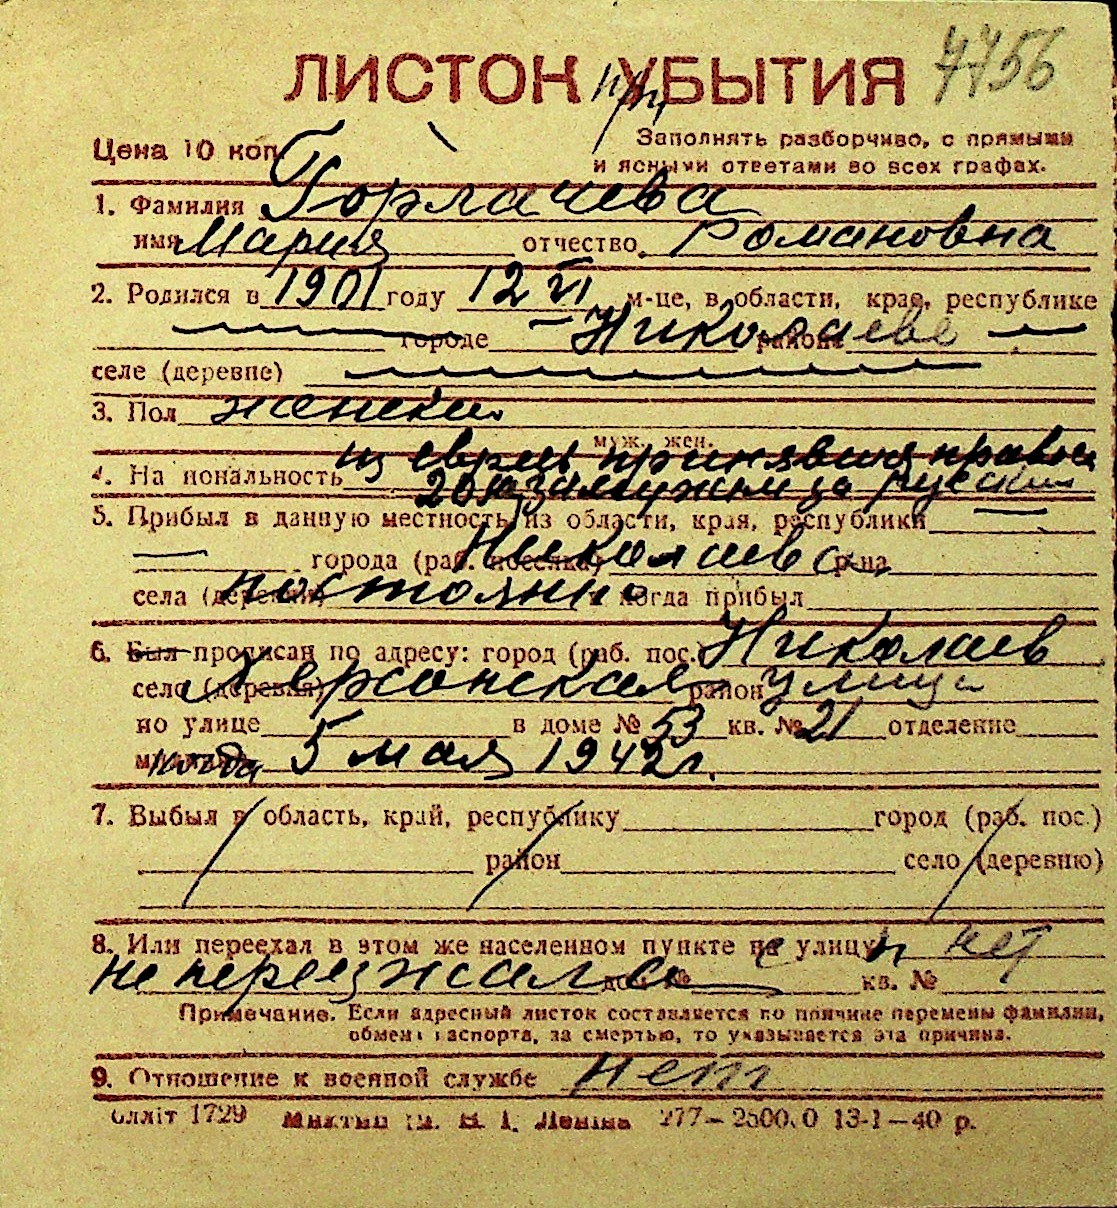 7756
ЛИСТОК при УБЫТИЯ
Цена 10 коп.
Заполнять разборчиво, с прямыми
и ясными ответами во всех графах.
1. Фамилия Горлачева
имя Мария отчество Романовна
2. Родился в 1901 году 12 VI м-це, в области, крае, республике
городе Николаеве района
селе (деревне)
3. Пол женский
муж., жен.
4. Национальность из евреев принявшая правосл
20 замужем за русским
5. Прибыл в данную местность из области, края, республики
города (раб. поселка) Николаев р-на
села (деревни) постоянно и когда прибыл
6. Был прописан по адресу: город (раб. пос.) Николаев
село (деревня) Херсонская район улица
по улице в доме № 53 кв. № 21 отделение
когда 5 мая 1942 г.
7. Выбыл в область, край, республику город (раб. пос.)
район село (деревню)
8. Или переехал в этом же населенном пункте на улицу нет
не переезжала дом № кв. №
Примечание. Если адресный листок составляется по причине перемены фамилии,
обмена паспорта, за смертью, то указывается эта причина.
9. Отношение к военной службе нет
Оллiт 1729 Леніна 277—2500.0 13-1—40 р.